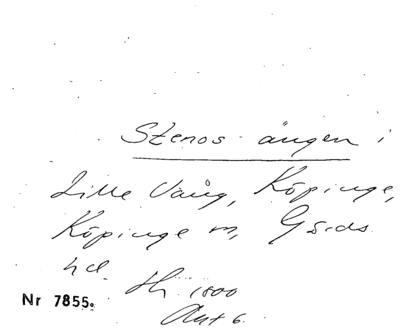 Stenos ängen i
Lille Vång, Köpinge,
Köpinge m, Gärds
hd. 1800
Nr 7855.